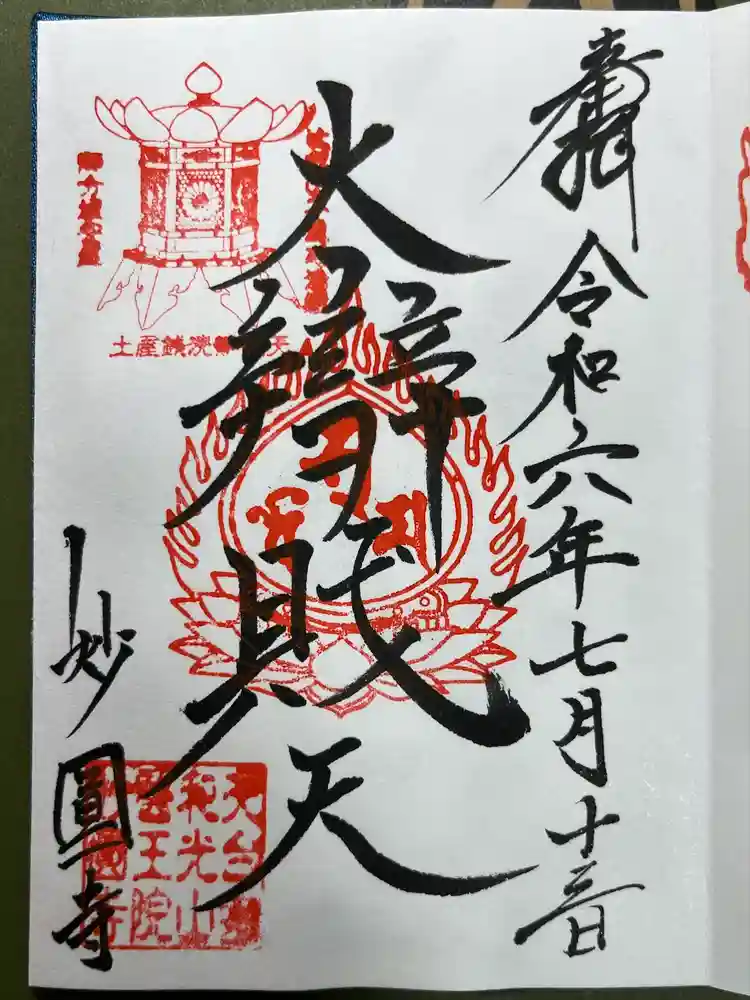 奉拝
令和六年七月十三日
大辯財天
妙圓寺
土屋銭洗辨財天
天台宗
和光山
雲王院
妙圓寺